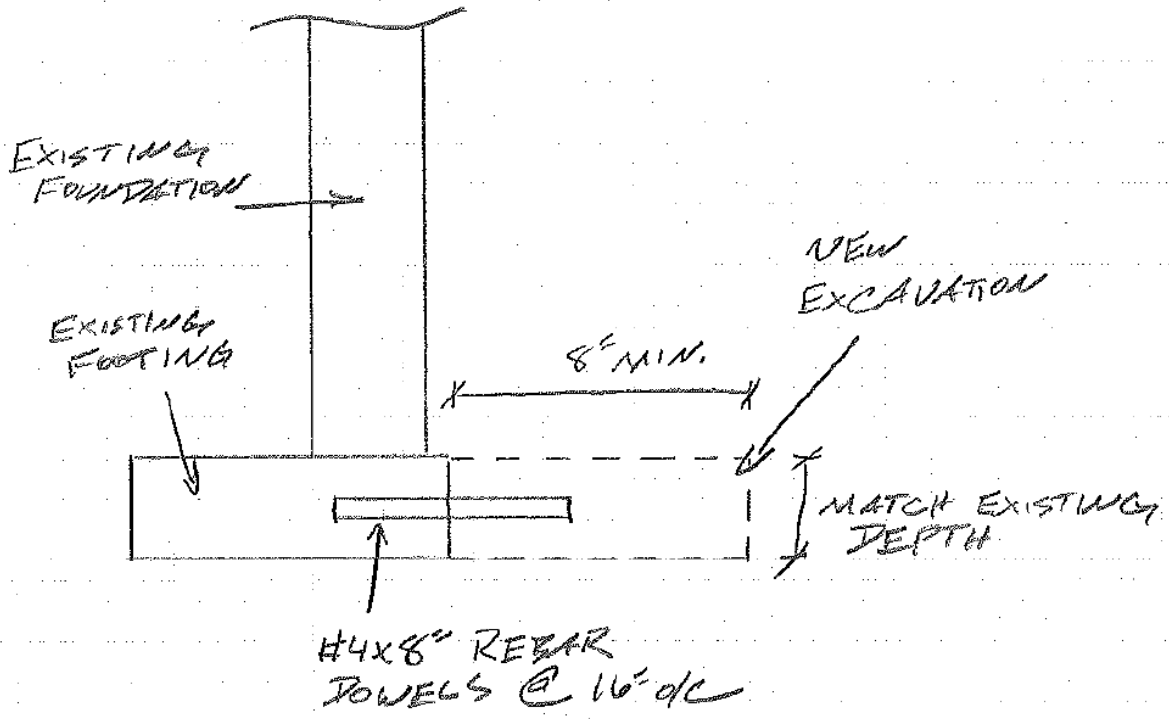 EXISTING
FOUNDATION
NEW
EXCAVATION
EXISTING
FOOTING
8" MIN.
MATCH EXISTING
DEPTH
#4x8" REBAR
DOWELS @ 16" o/c